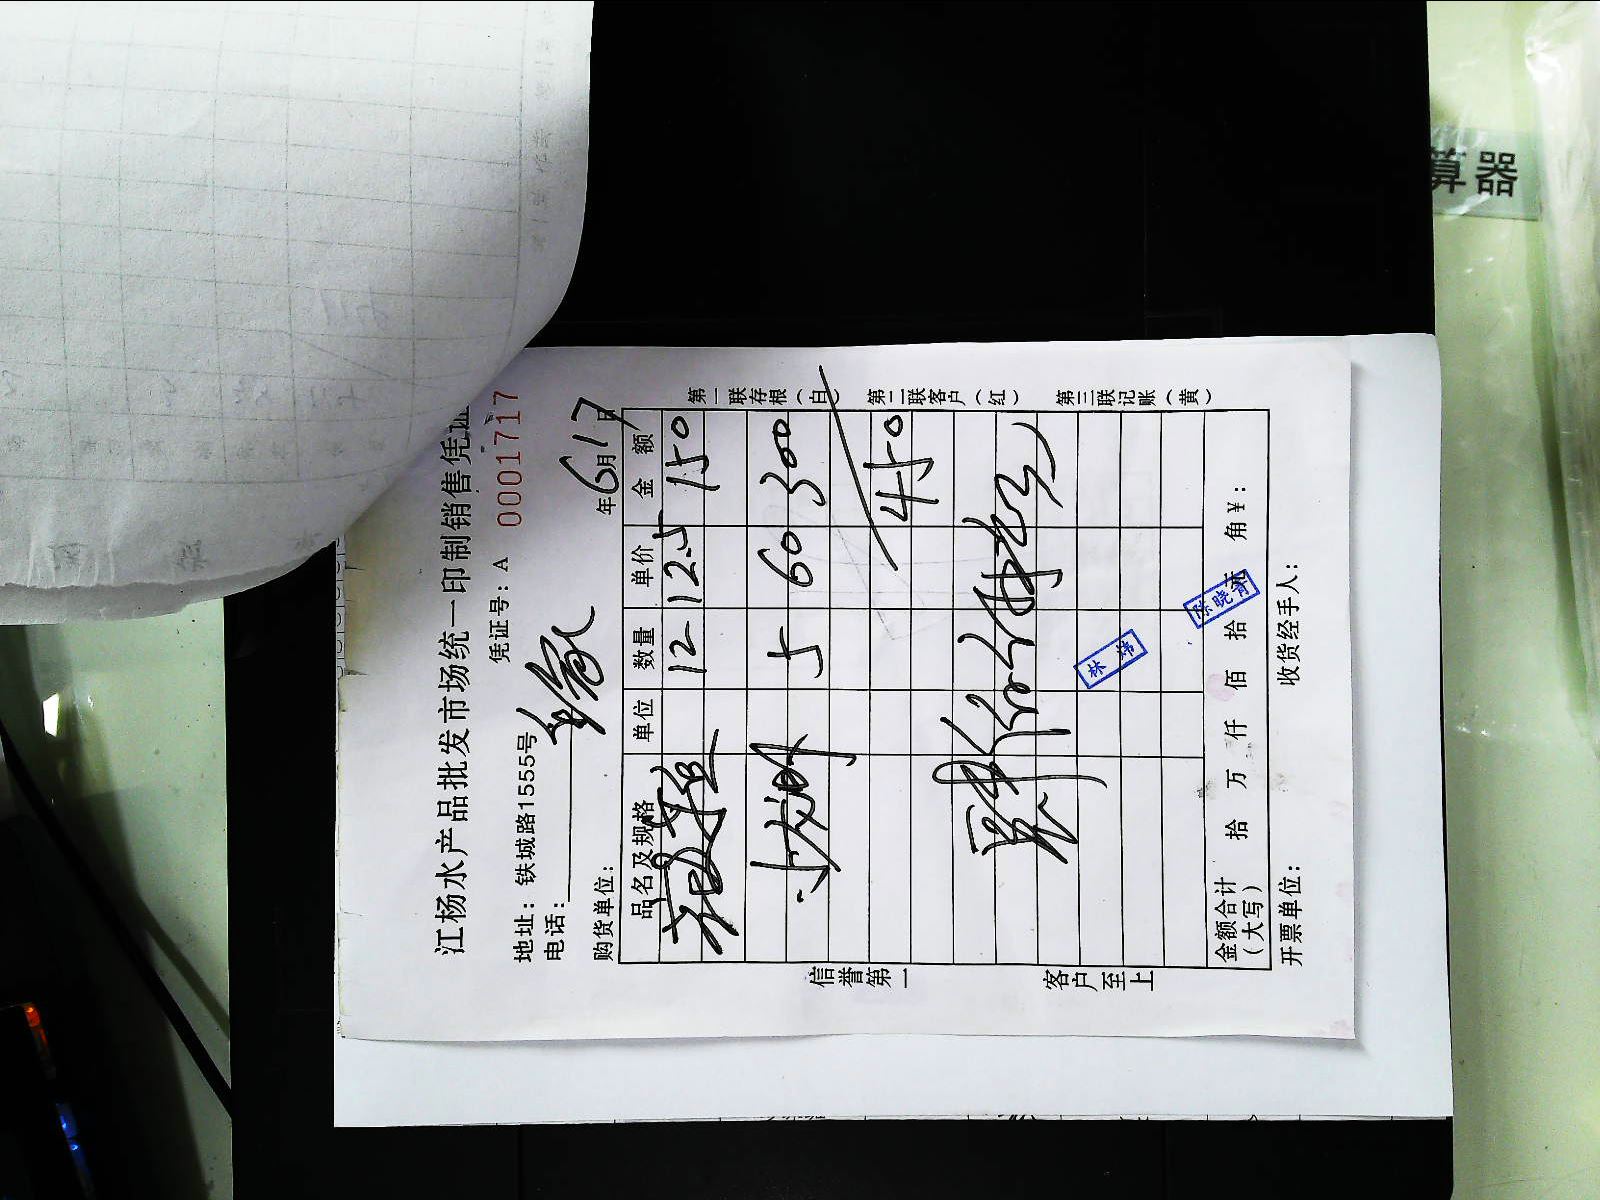 江杨水产品批发市场统一印制销售凭证
地址：铁城路1555号 凭证号：A 0001717
电话：
购货单位： 年6月17日
品名及规格 单位 数量 单价 金额
12 12.5 150
小龙虾 5 60 300
450
林炜
陈晓青
金额合计（大写） 拾 万 仟 佰 拾 元 角 ¥：
开票单位： 收货经手人：
信誉第一 客户至上
第一联存根（白） 第二联客户（红） 第三联记账（黄）
算器